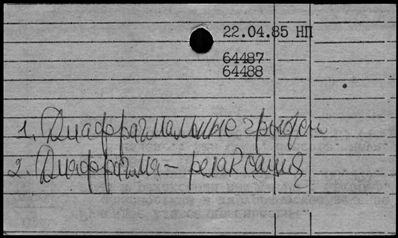 22.04.85 НП
64487
64488
1. Диафрагмальные грыжи
2. Диафрагма – релаксация